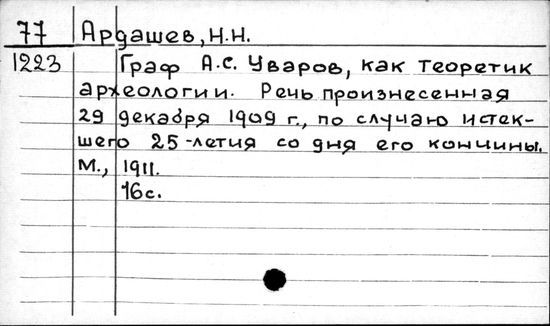 77 Ардашев, Н.Н.
1223 Граф А.С. Уваров, как теоретик
археологии. Речь произнесенная
29 декабря 1909 г., по случаю истек-
шего 25-летия со дня его кончины.
М., 1911.
16с.